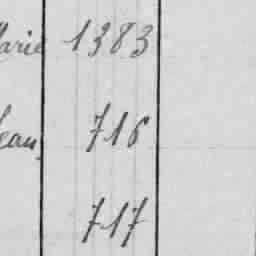 Marie 1383
Jean 716
717